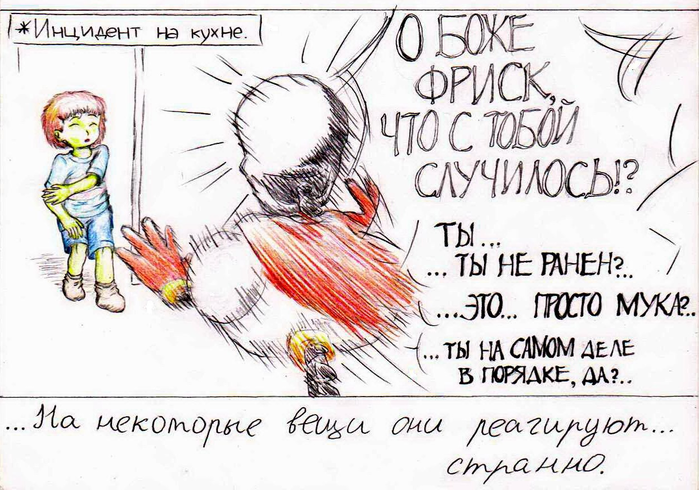 *Инцидент на кухне.
О БОЖЕ
ФРИСК,
ЧТО С ТОБОЙ
СЛУЧИЛОСЬ!?
ТЫ...
...ТЫ НЕ РАНЕН?..
...ЭТО... ПРОСТО МУКА?..
...ТЫ НА САМОМ ДЕЛЕ
В ПОРЯДКЕ, ДА?..
...На некоторые вещи они реагируют...
странно.